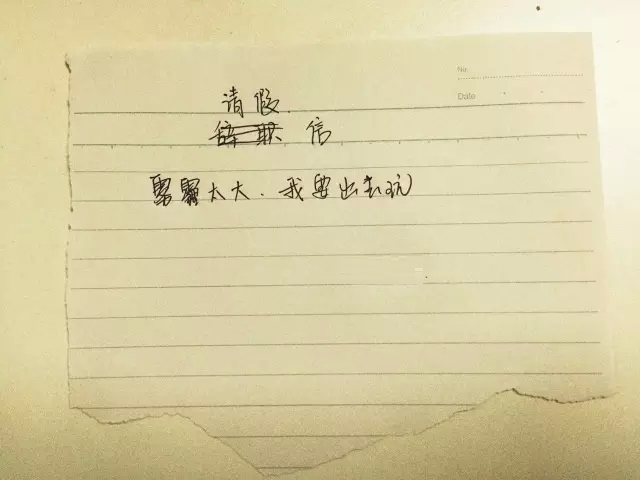 No.
Date
请假
辞职 信
雾霾太大.我要出去玩